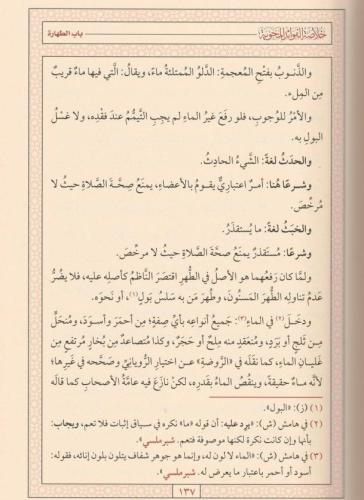 باب الطهارة
خلاصة الفوائد المحوية
والذَّنوبُ بفتْحِ المُعجمةِ: الدَّلوُ المُمتلئةُ ماءً، ويقالُ: الَّتي فيها ماءٌ قريبٌ
مِن المِلء.
والأمْرُ للوُجوبِ، فلو رفَعَ غيرُ الماءِ لم يجِبِ التَّيمُّمُ عندَ فقْدِه، ولا غسْلُ
البولِ به.
والحدَثُ لغةً: الشَّيءُ الحادِثُ.
وشرعًا هُنا: أمرٌ اعتباريٌّ يقومُ بالأعضاءِ، يمنَعُ صِحَّةَ الصَّلاةِ حيثُ لا
مرخِّصَ.
والخبَثُ لغةً: ما يُستقذَرُ.
وشرعًا: مُستَقذَرٌ يمنَعُ صحَّةَ الصَّلاةِ حيثُ لا مرخِّصَ.
ولمَّا كان رَفعُهما هو الأصلُ في الطُّهرِ اقتصَرَ النَّاظمُ كأصلِه عليه، فلا يضُرُّ
عَدمُ تناوُلِه الطُّهرَ المَسنُونَ، وطُهرَ مَن به سلَسُ بَولٍ(١)، أو نحوَه.
ودخَلَ(٢) في الماءِ(٣): جَميعُ أنواعِه بأيِّ صِفةٍ؛ مِن أحمَرَ وأسوَدَ، ومُنحَلٍّ
مِن ثَلجٍ أو بَرَدٍ، ومُنعَقِدٍ منه مِلحٌ أو حَجَرٌ، وكذا مُتصاعِدٌ مِن بُخارٍ مُرتفعٍ مِن
غلَيانِ الماءِ، كما نقَلَه في «الرَّوضةِ» عن اختيارِ الرُّويانيِّ وصحَّحه في غَيرِها؛
لأنَّه ماءٌ حقيقةً، وينقُصُ الماءُ بقَدرِه، لكنْ نازَعَ فيه عامَّةُ الأصحابِ كما قالَه
(١) (ز): «البول».
(٢) في هامش (ش): «يرد عليه: أن قوله «ما» نكرة في سياق إثبات فلا تعم، ويجاب:
بأنها وإن كانت نكرة لكنها موصوفة فتعم. شبرملسي».
(٣) في هامش (ش): «الماء لا لون له، وإنما هو جوهر شفاف يتلون بلون إنائه، فقوله:
أسود أو أحمر باعتبار ما يعرض له. شبرملسي».
١٣٧